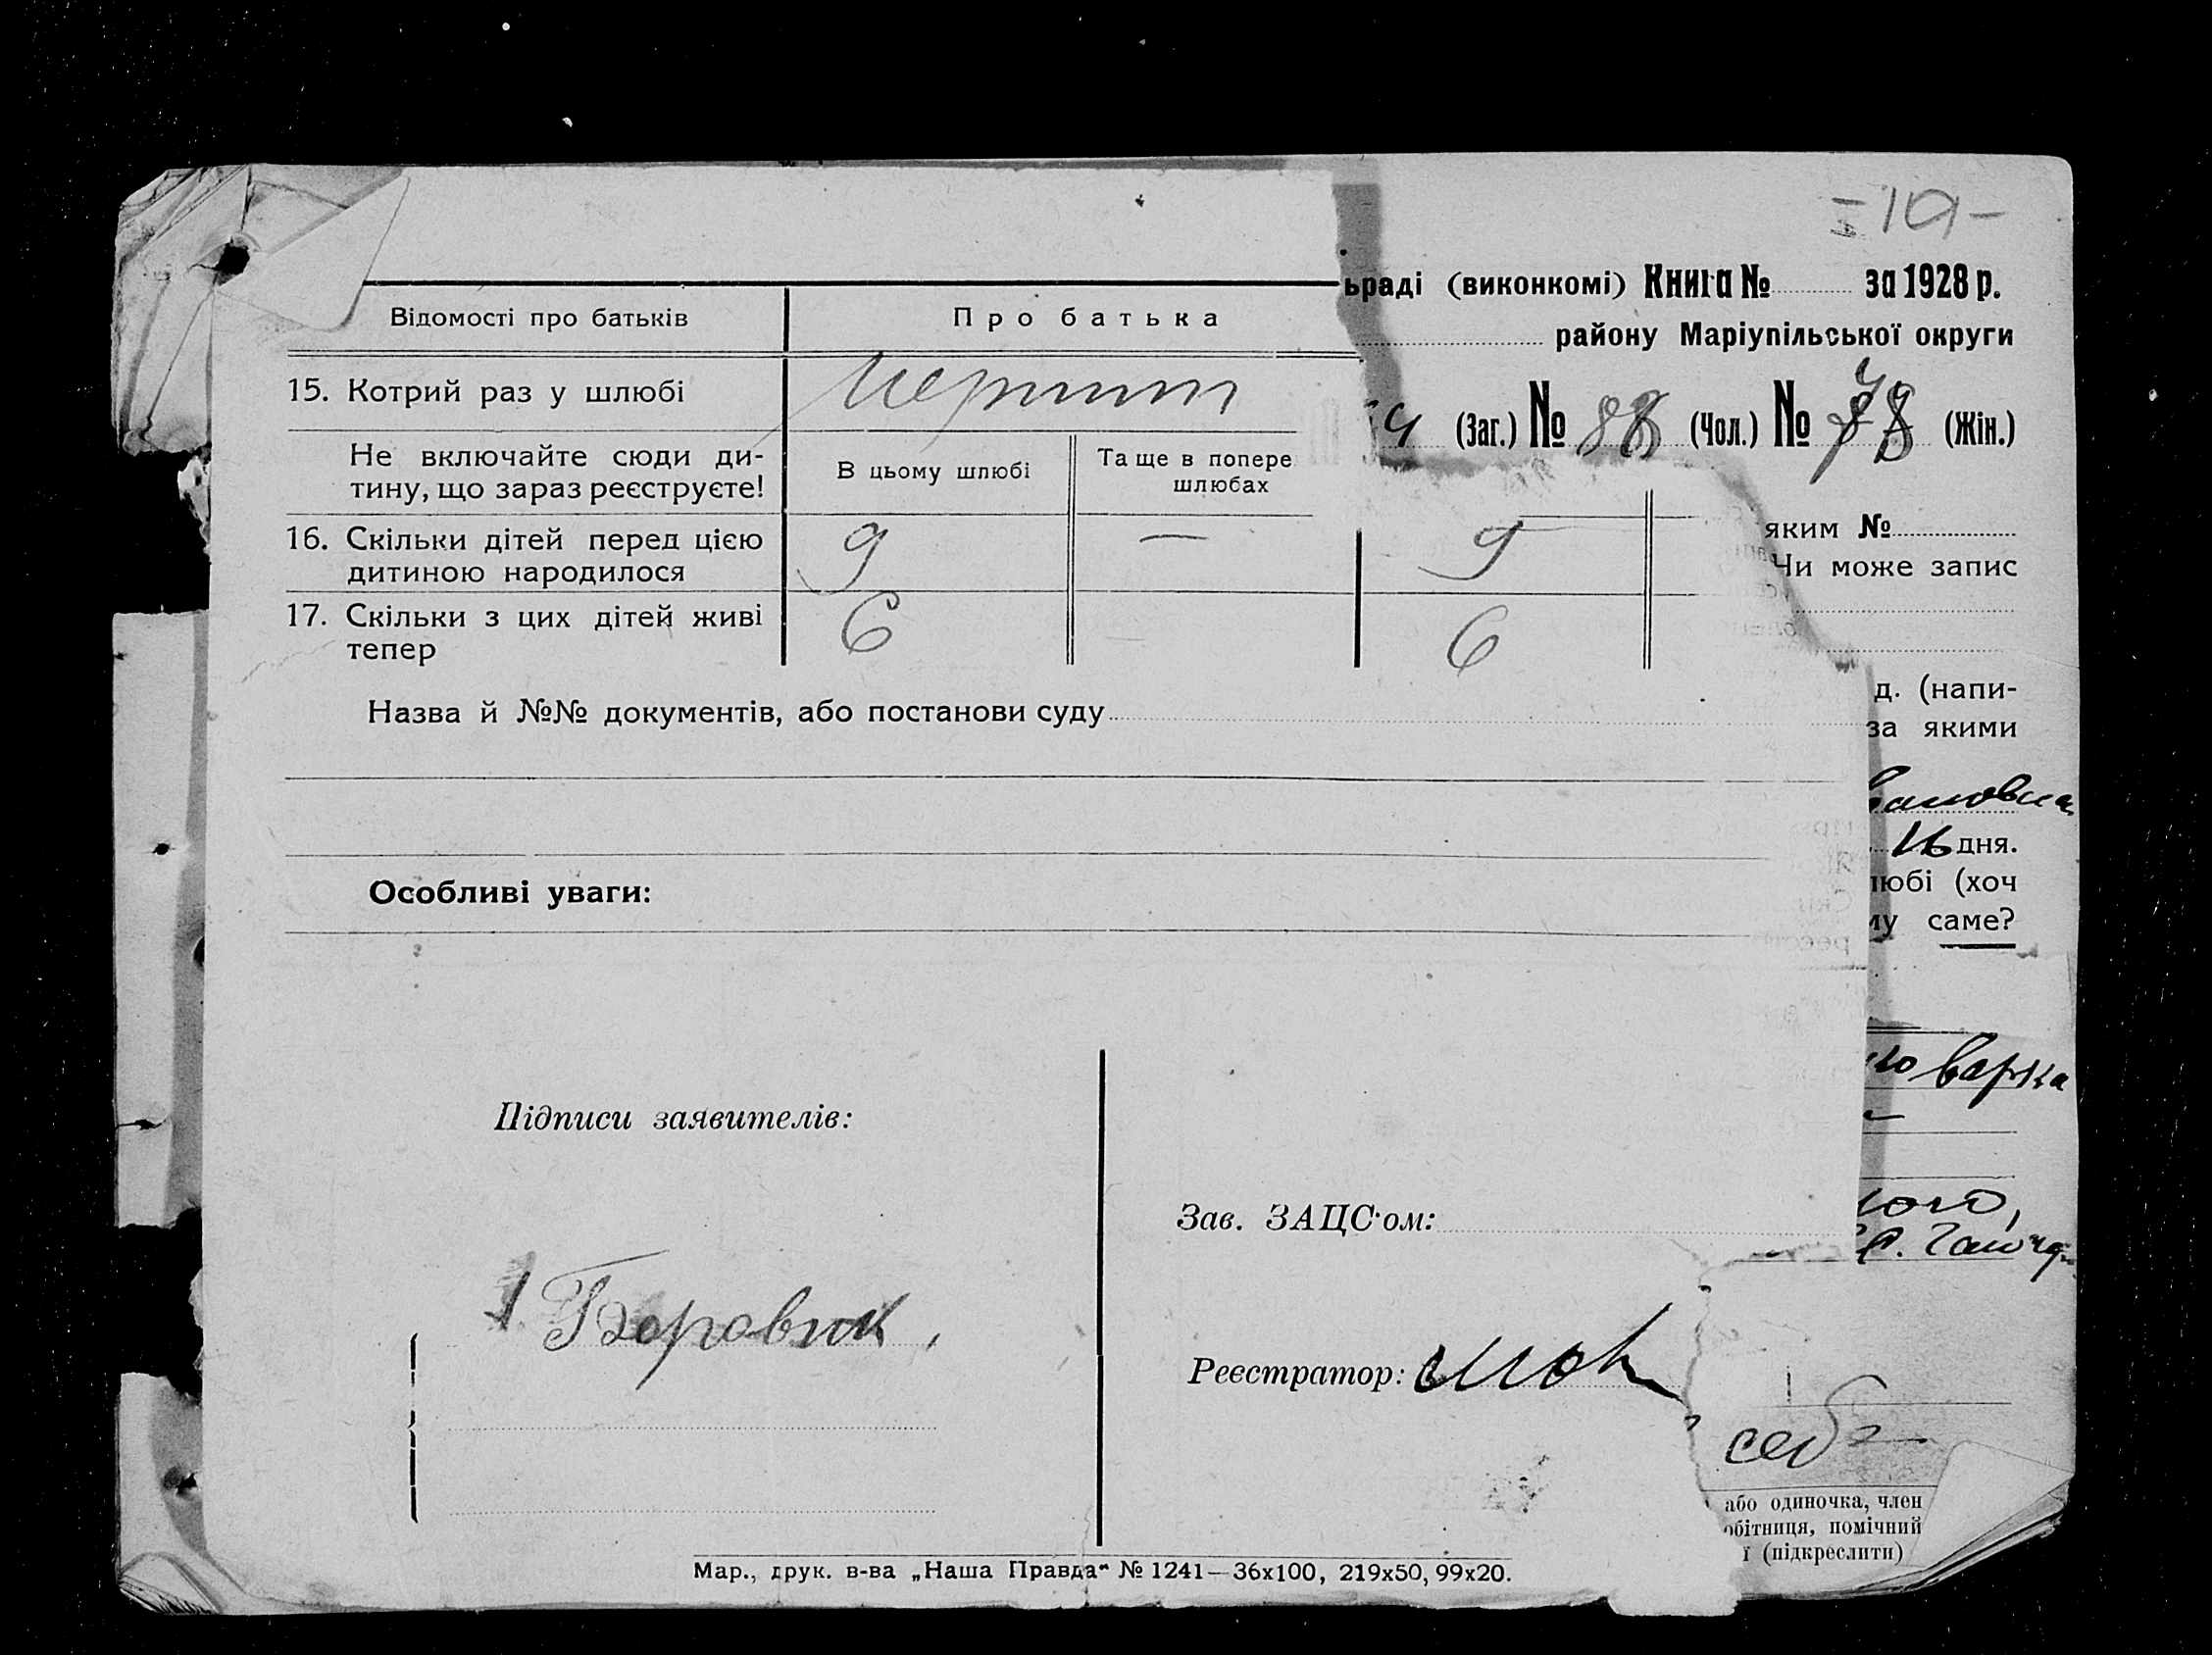 -19-
ьраді (виконкомі) Книга № за 1928 р.
району Маріупільської округи
(Заг.) № 88 (Чол.) № (Жін.)
Відомості про батьків Про батька
15. Котрий раз у шлюбі
Не включайте сюди ди-
тину, що зараз реєструєте!
В цьому шлюбі
Та ще в попере
шлюбах
16. Скільки дітей перед цією
дитиною народилося
9 — 9
17. Скільки з цих дітей живі
тепер
6 — 6
яким №
Чи може запис
д. (напи-
за якими
Назва й №№ документів, або постанови суду
ановна
16 дня.
любі (хоч
му саме?
Особливі уваги:
варка
Підписи заявителів:
Зав. ЗАЦС'ом:
Боровик
Реєстратор:
себ
або одиночка, член
обітниця, помічний
ї (підкреслити)
Мар., друк. в-ва „Наша Правда“ № 1241—36х100, 219х50, 99х20.